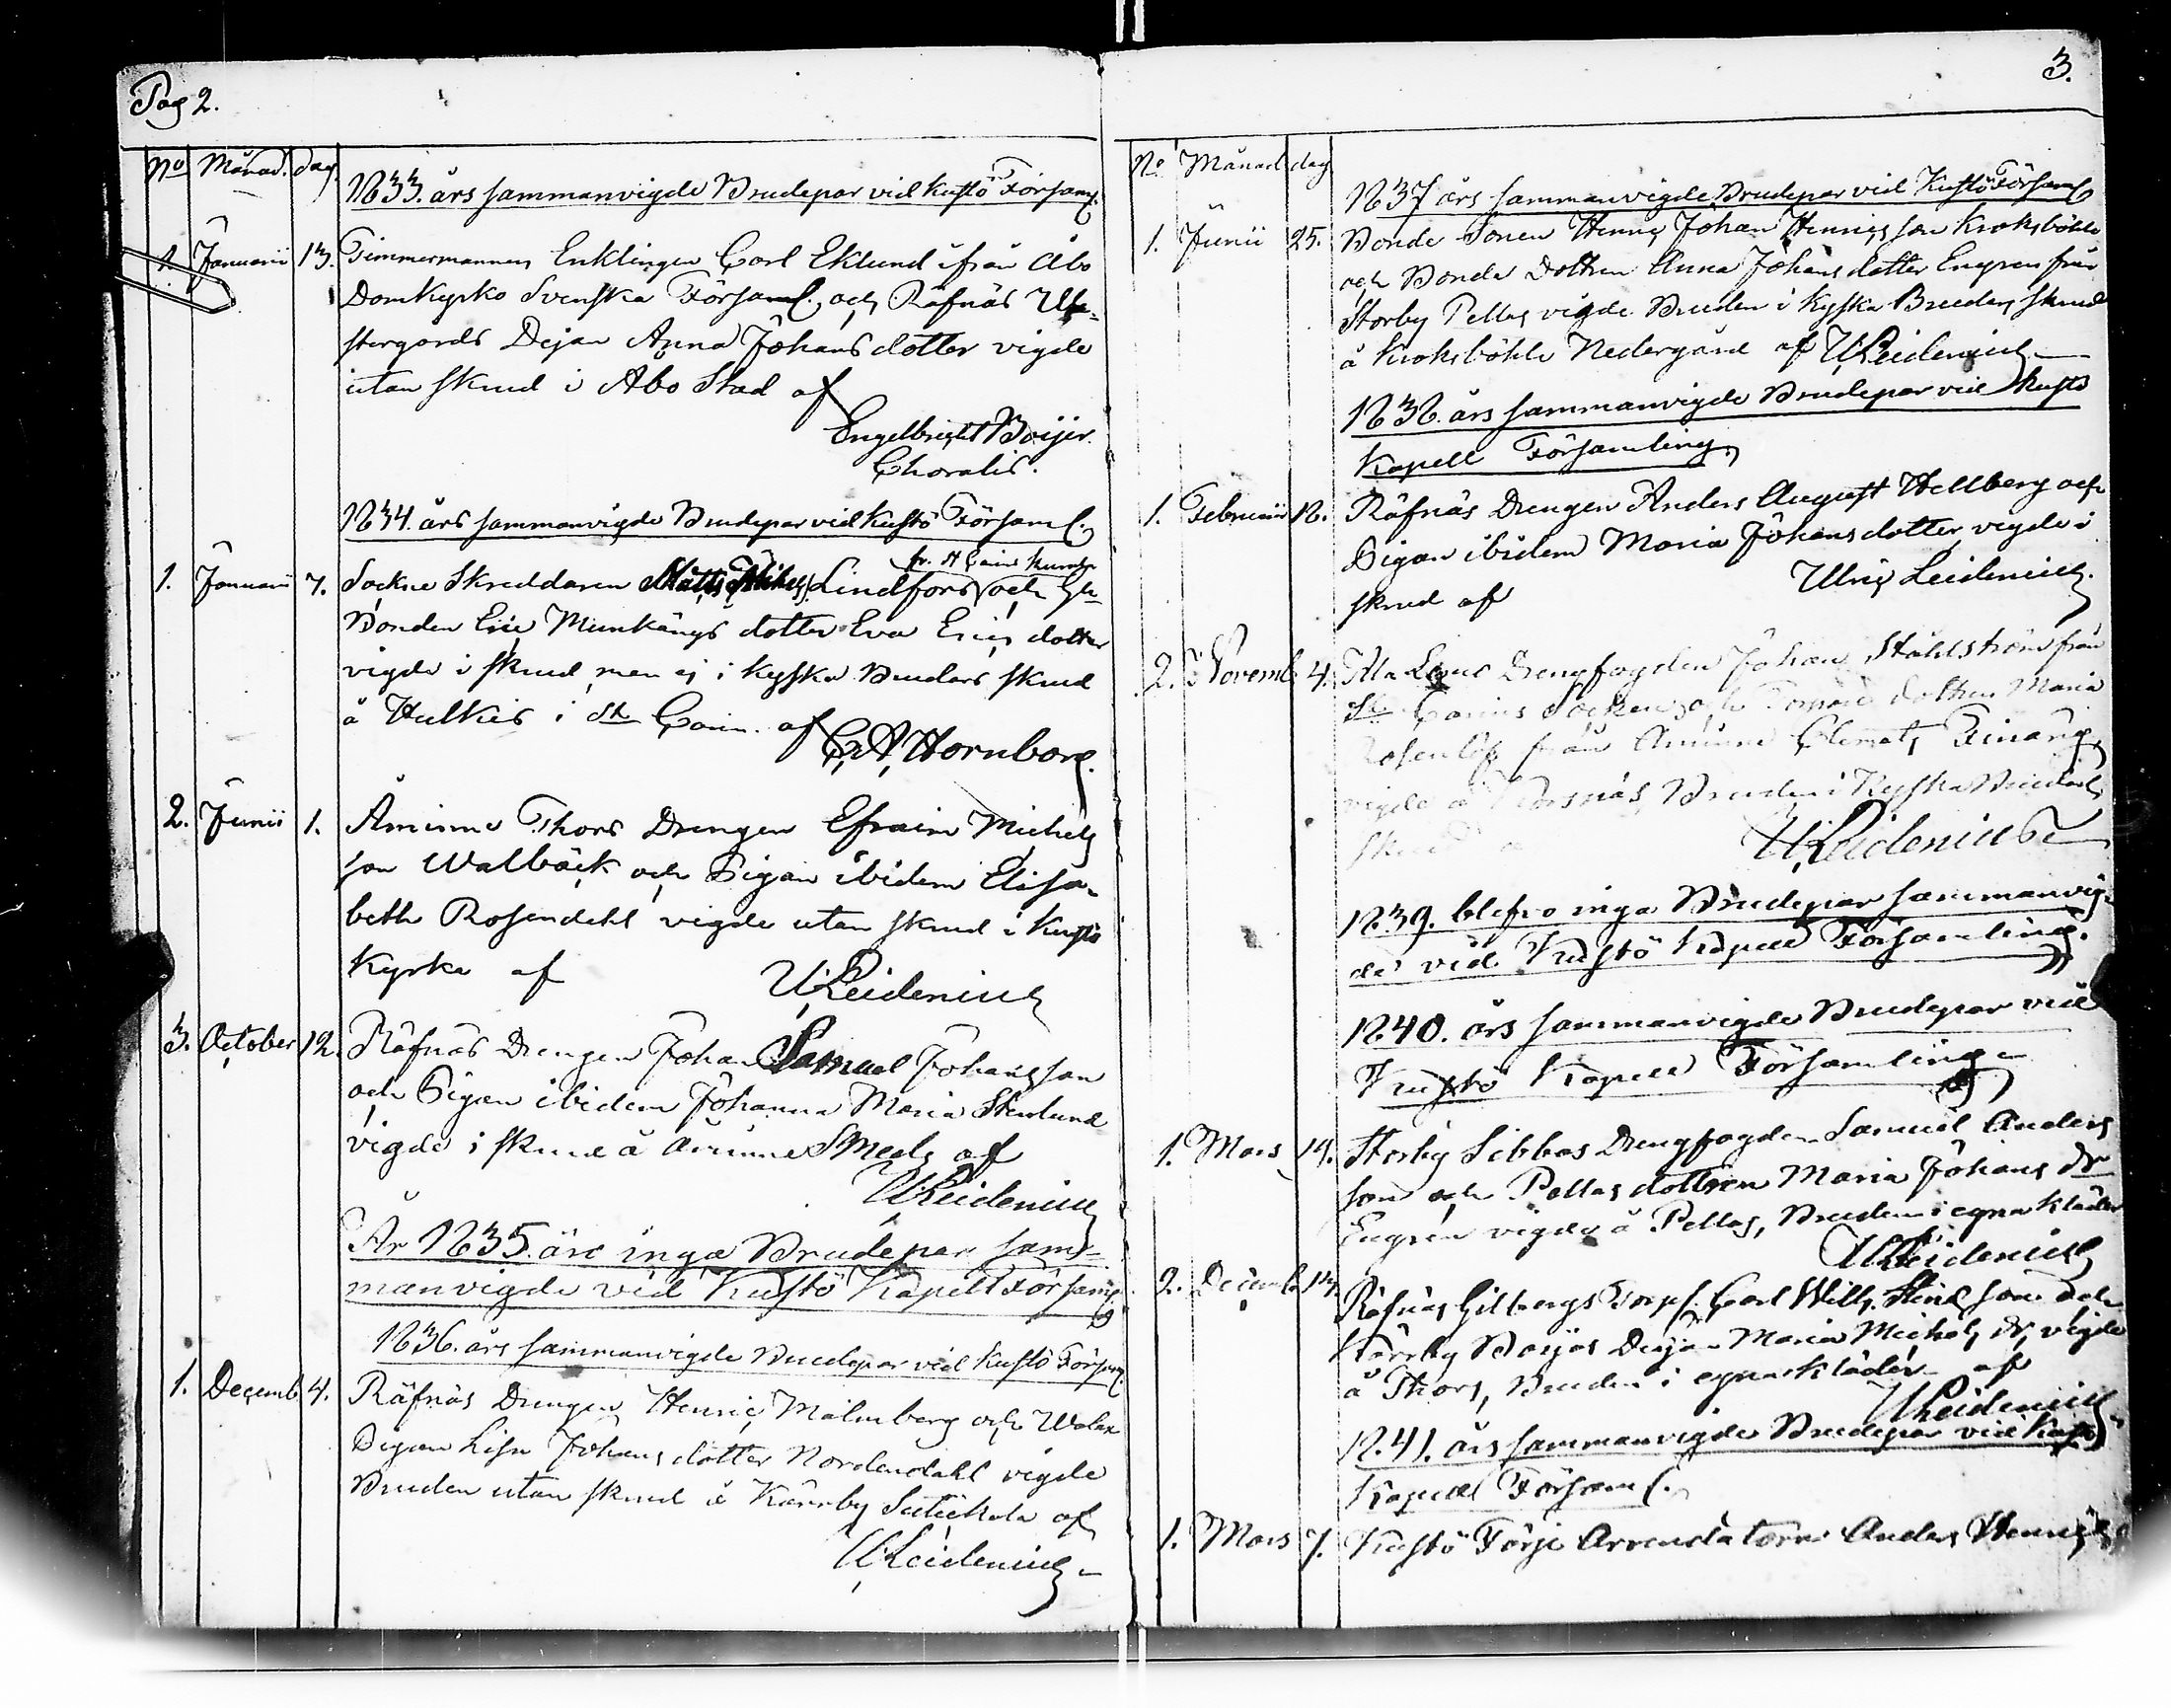 Pag 2.
No Månad. dag.
1833. års sammanvigde Brudepar vid Kustö Församl.
1. Januarii 13. Timmermannen Enklingen Carl Eklund ifrån Åbo
Domkyrko Svenska Församl. och Räfnäs We-
stergårds Dejan Anna Johansdotter vigde
utan skrud i Åbo Stad af
Engelbrecht Boijer.
Choralis.
1834. års sammanvigde Brudepar vid Kustö Församl.
fr. St Carins
1. Januarii 7. Sockne Skreddaren Matts Lindfors och
Bonden Eric Munkängs dotter Eva Erics dotter
vigde i skrud men ej i kyska Brudars skrud
å Hulkis i St Carin. af
C. A. Hornborg.
2. Junii 1. Åminne Thors Drengen Efraim Michels
son Walbäck och Pigan ibidem Elisa-
beth Rosendahl vigde utan skrud i Kustö
Kyrka af
U. Leidenius
3. October 12. Räfnäs Drengen Johan Samuel Johansson
och Pigan ibidem Johanna Maria Stenlund
vigde i skrud å Åminne Smeds af
U. Leidenius
År 1835. äro inga Brudepar sam-
manvigde vid Kustö Kapell Församl.
1836. års sammanvigde Brudepar vid Kustö Försam.
1. Decemb. 4. Räfnäs Drengen Henric Malmberg och
Pigan Lisa Johansdotter Nordendahl vigde
Bruden utan skrud å Kärrby af
U. Leidenius
3.
No Månad dag
1837 års sammanvigde Brudepar vid Kustö Församl
1. Junii 25. Bonde Sonen Henric Johan Henricsson Kroksböhle
och Bonde Dottren Anna Johansdotter Engren från
Storby Pellas vigde Bruden i Kyska Bruders skrud
å Kroksböhle Nedergård af U. Leidenius
1838. års sammanvigde Brudepar vid Kustö
Kapell Församling.
1. Februarii 18. Räfnäs Drengen Anders August Hellberg och
Pigan ibidem Maria Johansdotter vigde i
skrud af Ulric Leidenius.
2. Novemb. 4. Drengfogden Johan Ståhlström från
St Carins Socken och dottren Maria
Rosenlöf från Åminne
vigde å Bruden i Kyska Brudars
U. Leidenius
1839. blefvo inga Brudepar sammanvig-
de vid Kustö Kapell Församling.
1840. års sammanvigde Brudepar vid
Kustö Kapell Församling
1. Mars 14. Storby Sibbas Drengfogden Samuel Anders
son och Pellas dottren Maria Johans dr
Engren vigde å Pellas, Bruden i egna kläder
U. Leidenius
2. Decemb. Räfnäs Carl Wilh. och
Kärrby Deijan Maria Michels dr, vigde
å Thors, Bruden i egna kläder af
U. Leidenius
1841. års sammanvigde Brudepar vid Kustö
Kapell Församl.
1. Mars 7. Kustö Färje Arrendatorn Anders Henrics